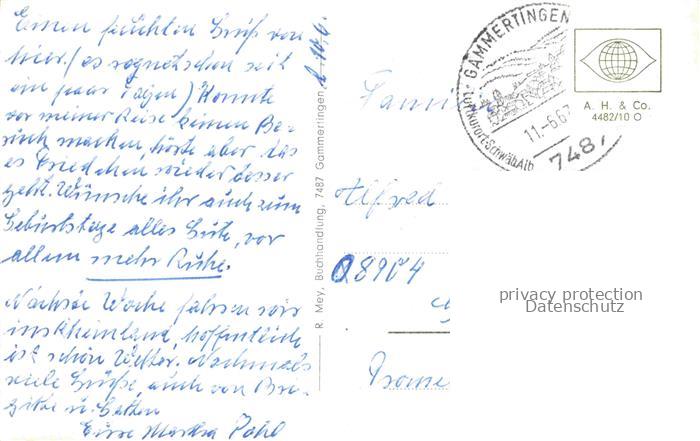 Einen feuchten Gruß von
hier. (es regnet schon seit
ein paar Tagen) Konnte
vor meiner Reise keinen Be-
such machen, hörte aber das
es Friedchen wieder besser
geht. Wünsche ihr auch zum
Geburtstage alles Gute, vor
allem mehr Ruhe.
Nächste Woche fahren wir
ins Rheinland, hoffentlich
ist schön Wetter. Nochmals
viele Grüße auch von Bri-
gitte u.
Eure Martha Pohl
d. 10.6.
R. Mey, Buchhandlung, 7487 Gammertingen
GAMMERTINGEN
Luftkurort·Schwäb.Alb
11.-6.67
7487
A. H. & Co.
4482/10 O
Fami
Alfred
8904
privacy protection
Datenschutz